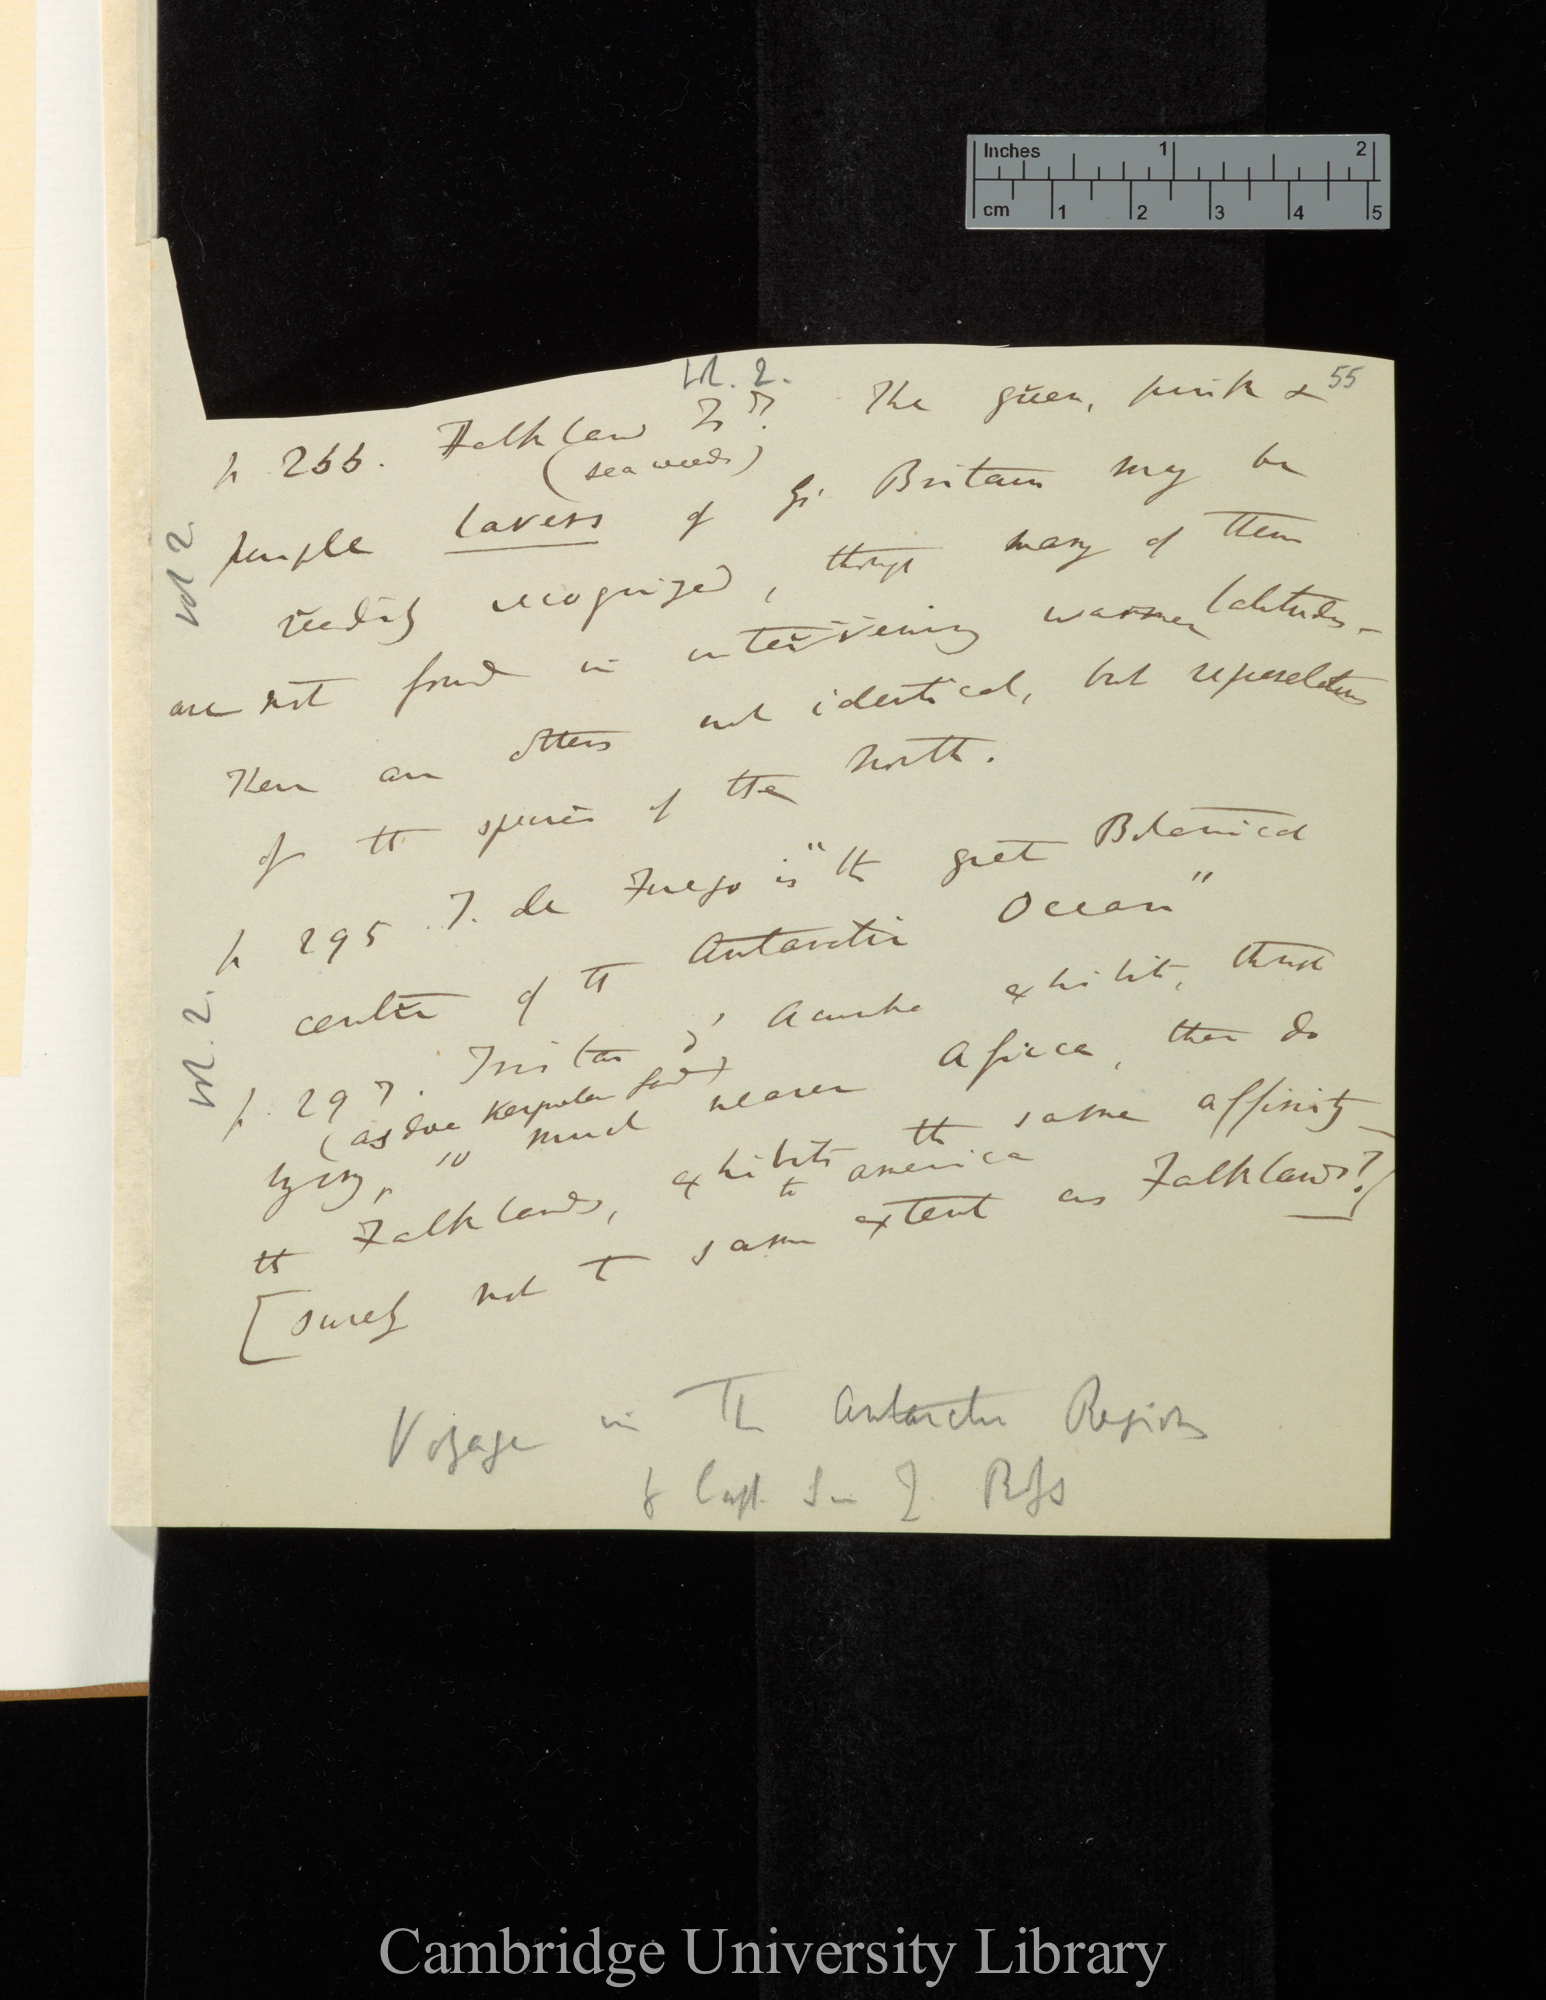 Inches 1 2
cm 1 2 3 4 5
55
Vol. 2.
p 266. Falkland Is? The green, pink &
(sea weeds)
purple lavers of Gt Britain may be
readily recognized, though many of them
are not found in intervening warmer latitudes –
There are others not identical, but representatives
of the species of the North.
p 295 T. de Fuego is "the great Botanical
center of the Antarctic Ocean"
p. 297. Tristan d' Acunha exhibits, though
(as does Kerguelen land)
lying, " much nearer Africa, than do
the Falklands, exhibits the same affinity –
to America
[surely not to same extent as Falklands?]
Vol 2
Vol. 2.
Voyage in The Antarctic Regions
by Capt. Sir J. Ross
Cambridge University Library